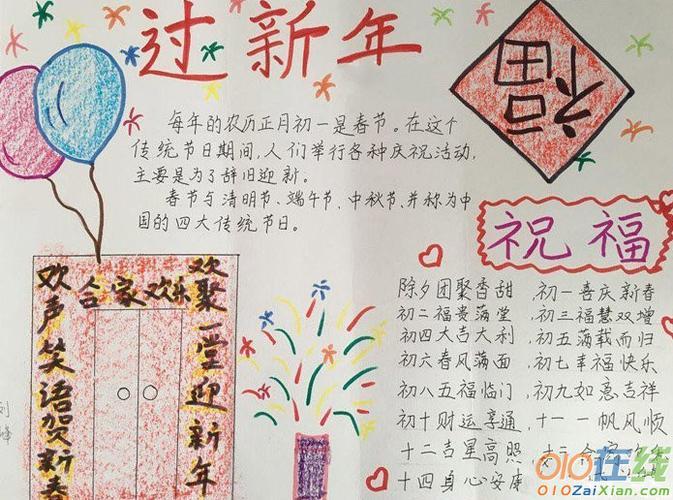 过新年
福
每年的农历正月初一是春节。在这个
传统节日期间,人们举行各种庆祝活动,
主要是为了辞旧迎新。
春节与清明节、端午节、中秋节、并称为中
国的四大传统节日。
祝福
合家欢乐
欢声笑语贺新春
欢聚一堂迎新年
除夕团聚香甜
初一喜庆新春
初二福贵满堂
初三福慧双增
初四大吉大利
初五满载而归
初六春风满面
初七幸福快乐
初八五福临门
初九如意吉祥
初十财运亨通
十一一帆风顺
十二吉星高照
十四身心安康
刘
010在线
010ZaiXian.com